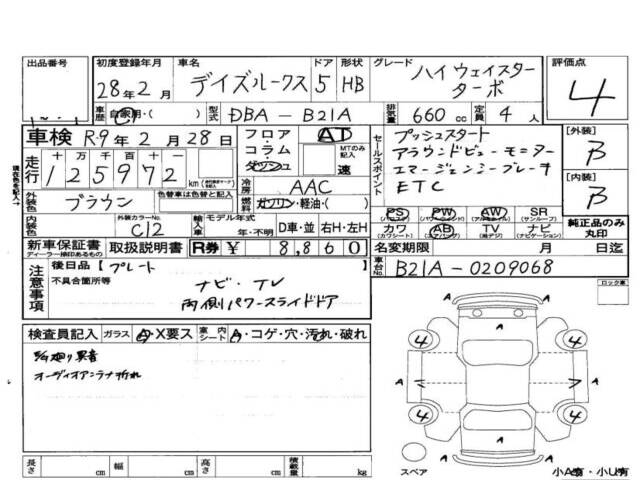 出品番号
初度登録年月 車名 ドア 形状 グレード 評価点
28年2月 デイズルークス 5 HB ハイウェイスター ターボ 4
車歴 自家用・( ) 型式 DBA-B21A 排気量 660 cc 定員 4 人
車検 R-9年2月28日
フロア・コラム・ダッシュ AT MTのみ記入 速
セールスポイント
プッシュスタート
アラウンドビューモニター
エマージェンシーブレーキ
ETC
[外装] B
[内装] B
現在表を記入→
走行 十万千百十一
125972 km
冷房 AAC
外装色 ブラウン 色替車は色替と記入
燃料 ガソリン・軽油・( )
PS PW AW SR
(パワステ) (パワーウィンドウ) (アルミホイル) (サンルーフ)
カワ AB TV ナビ
(カワシート) (エアバッグ) (純デジ) (ナビゲーション)
純正品のみ丸印
内装色 外装カラーNo. C12
輸入車 モデル年式 年・不明 D車・並 右H・左H
新車保証書 取扱説明書 R券 ¥ 8,860
ディーラー捺印あるもの
名変期限 月 日迄
車台No. B21A-0209068
注意事項
後日品【プレート
不具合箇所等
ナビ・TV
両側パワースライドドア
ロック車
検査員記入 ガラス A・X要ス 室内シート A・コゲ・穴・汚れ・破れ
異音
オーディオアンテナ折れ
A
4 A 4
A A A
4 A 4
A
スペア 小A有・小U有
長さ cm 幅 cm 高さ cm 積載量 kg